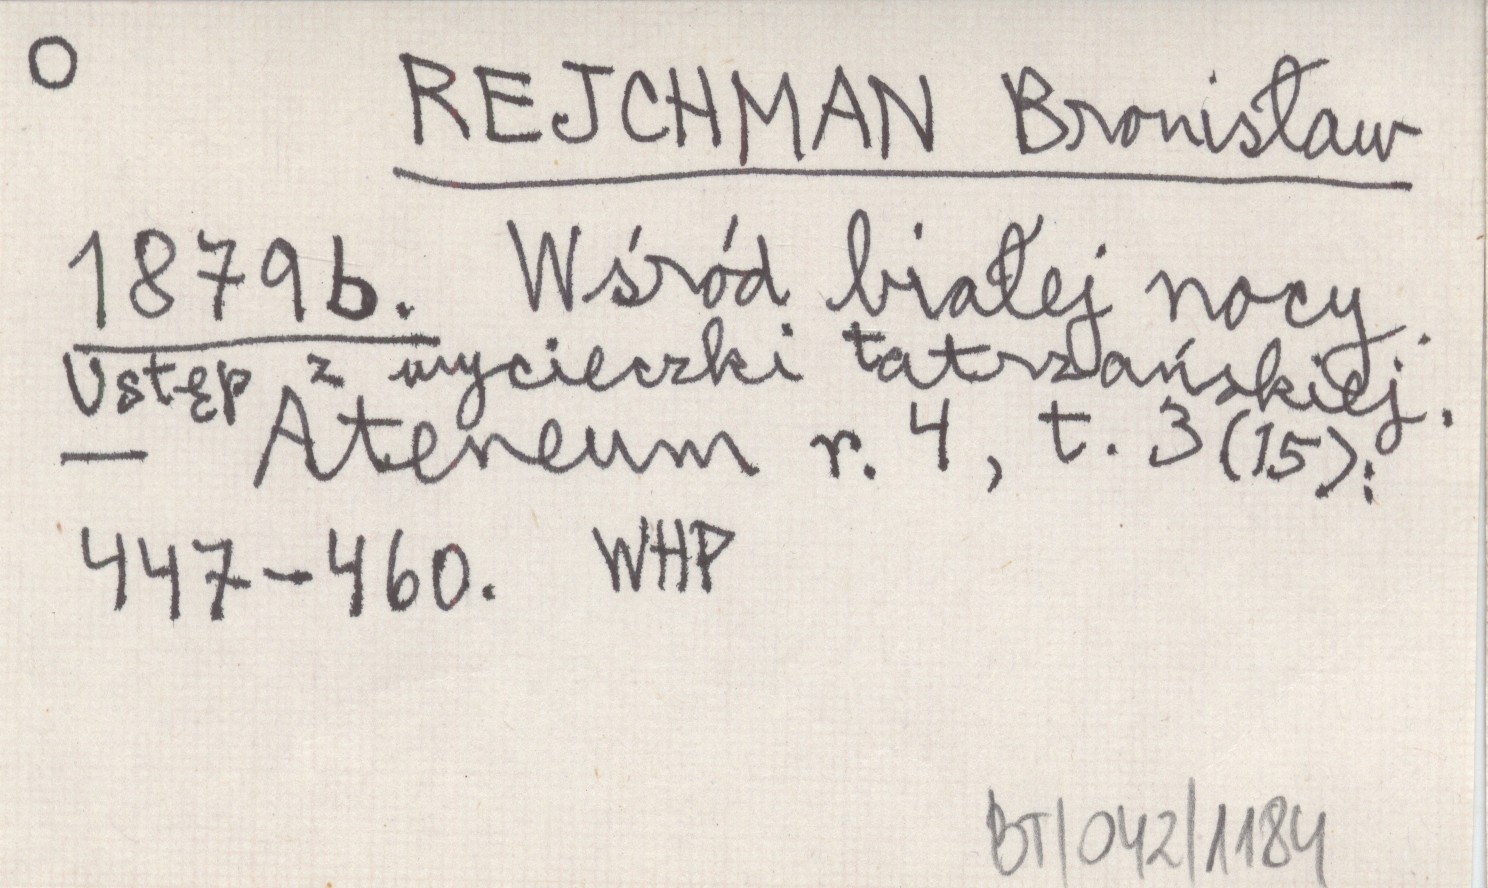 O
REJCHMAN Bronisław
1879b. Wśród białej nocy.
Ustęp z wycieczki tatrzańskiej.
— Ateneum r. 4, t. 3 (15):
447-460. WHP
BT/042/1184